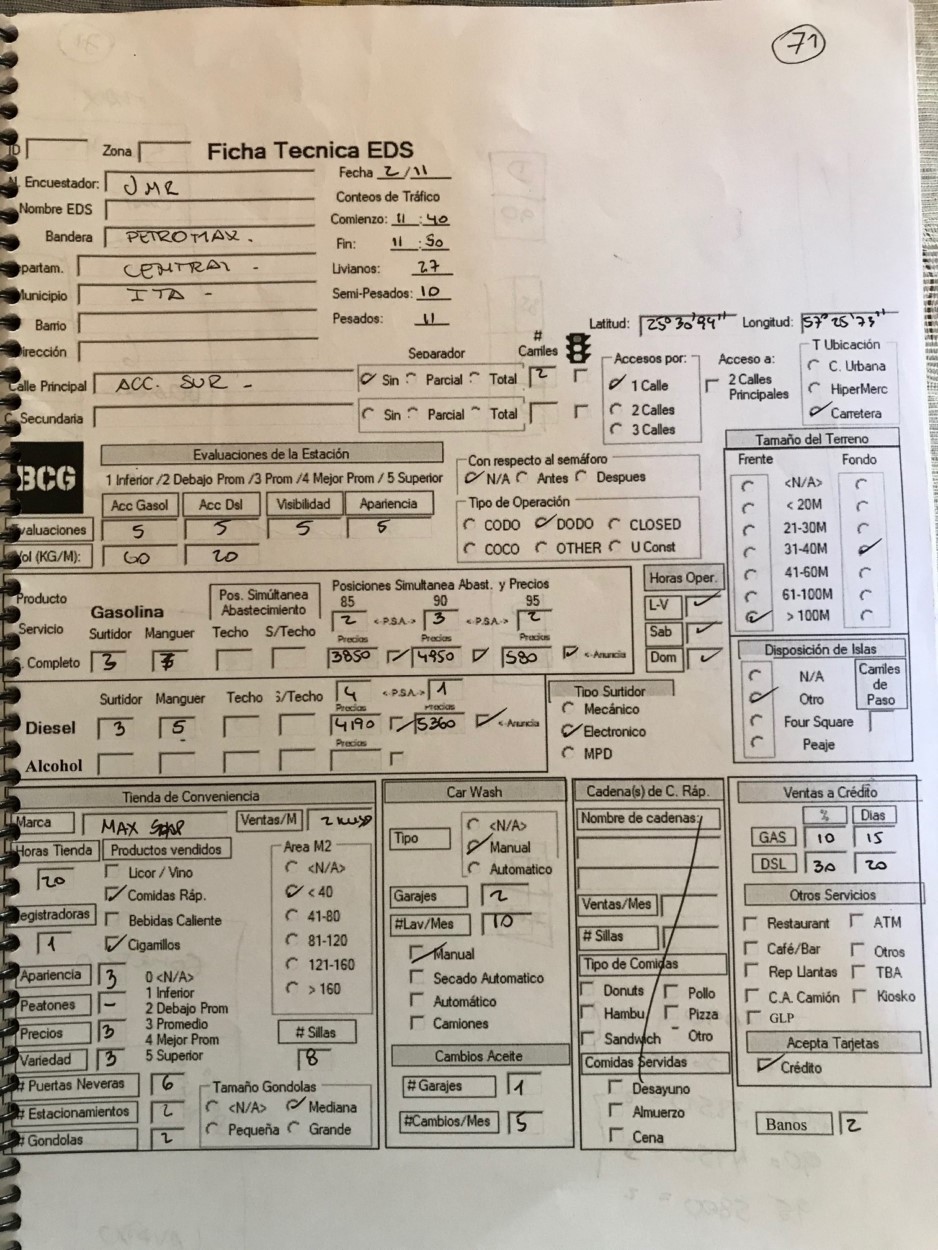 71
Zona Ficha Tecnica EDS
Fecha 2/11
Encuestador: JMR
Conteos de Tráfico
Nombre EDS
Comienzo: 11:40
Bandera PETROMAX.
Fin: 11:50
partam. CENTRAL -
Livianos: 27
unicipio ITA -
Semi-Pesados: 10
Barrio
Pesados: 11
Latitud: 25° 30' 94" Longitud: 57° 25' 73"
irección
Separador # Carriles
Calle Principal ACC. SUR - Sin Parcial Total 2
C. Secundaria Sin Parcial Total
Accesos por: Acceso a:
1 Calle 2 Calles Principales
2 Calles
3 Calles
T Ubicación
C. Urbana
HiperMerc
Carretera
BCG
Evaluaciones de la Estación
1 Inferior /2 Debajo Prom /3 Prom /4 Mejor Prom / 5 Superior
Acc Gasol Acc Dsl Visibilidad Apariencia
valuaciones 5 5 5 5
Vol (KG/M): 60 20
Con respecto al semáforo
N/A Antes Despues
Tipo de Operación
CODO DODO CLOSED
COCO OTHER U Const
Tamaño del Terreno
Frente Fondo
<N/A>
< 20M
21-30M
31-40M
41-60M
61-100M
> 100M
Producto
Servicio
Gasolina
Pos. Simultánea Abastecimiento
Posiciones Simultanea Abast. y Precios
85 90 95
2 <-P.S.A-> 3 <-P.S.A-> 2
Surtidor Manguer Techo S/Techo Precios Precios Precios
. Completo 3 7 3850 4950 580 <-Anuncia
Horas Oper.
L-V
Sab
Dom
Disposición de Islas
N/A
Otro
Four Square
Peaje
Carriles de Paso
Surtidor Manguer Techo S/Techo 4 <-P.S.A-> 1
Precios Precios
Diesel 3 5 4190 5360 <-Anuncia
Precios
Alcohol
Tipo Surtidor
Mecánico
Electronico
MPD
Tienda de Conveniencia
Marca MAX Ventas/M
Horas Tienda Productos vendidos
20
Licor / Vino
Comidas Ráp.
Bebidas Caliente
Cigarrillos
egistradoras
1
Area M2
<N/A>
< 40
41-80
81-120
121-160
> 160
Apariencia 3
Peatones -
Precios 3
Variedad 3
0 <N/A>
1 Inferior
2 Debajo Prom
3 Promedio
4 Mejor Prom
5 Superior
# Sillas
8
# Puertas Neveras 6
# Estacionamientos 2
# Gondolas 2
Tamaño Gondolas
<N/A> Mediana
Pequeña Grande
Car Wash
Tipo
<N/A>
Manual
Automatico
Garajes 2
#Lav/Mes 10
Manual
Secado Automatico
Automático
Camiones
Cambios Aceite
# Garajes 1
#Cambios/Mes 5
Cadena(s) de C. Ráp.
Nombre de cadenas:
Ventas/Mes
# Sillas
Tipo de Comidas
Donuts Pollo
Hambu Pizza
Sandwich Otro
Comidas Servidas
Desayuno
Almuerzo
Cena
Ventas a Crédito
% Dias
GAS 10 15
DSL 30 20
Otros Servicios
Restaurant ATM
Café/Bar Otros
Rep Llantas TBA
C.A. Camión Kiosko
GLP
Acepta Tarjetas
Crédito
Banos 2